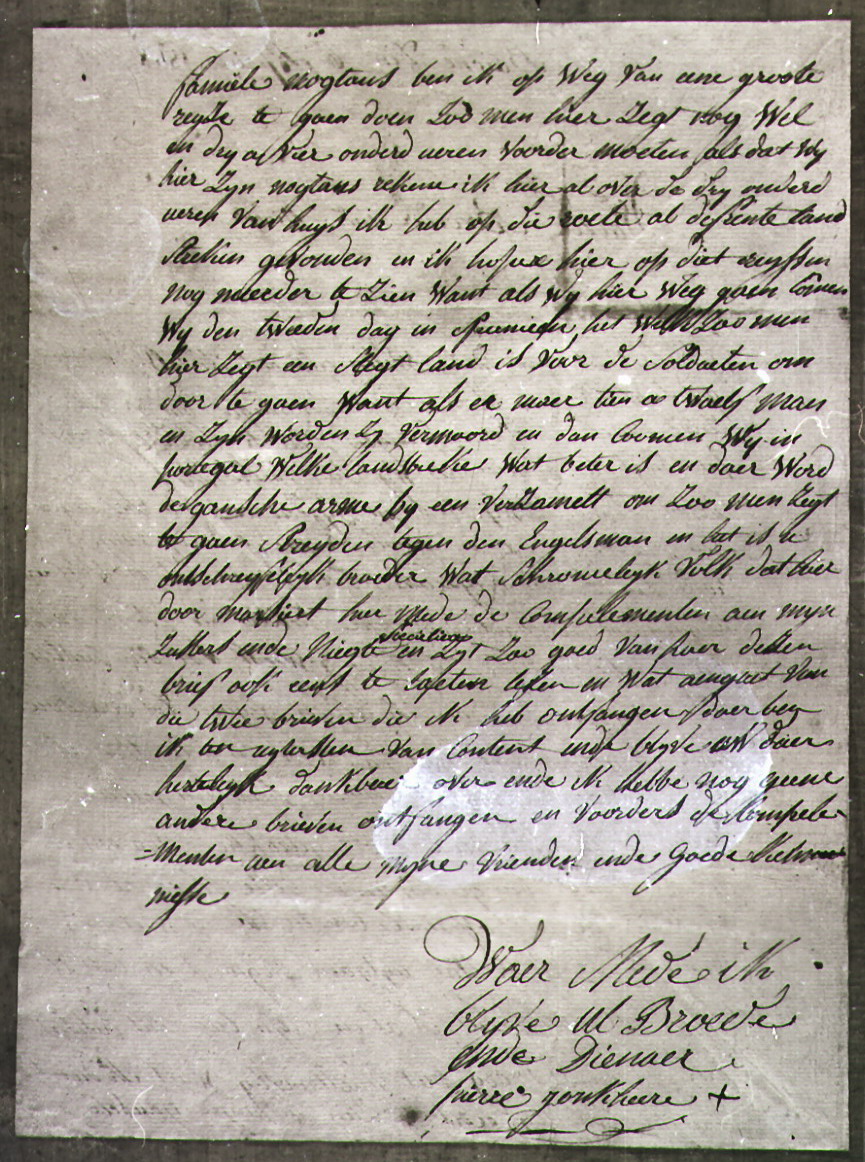 famiele nogtans ben ik op Weg Van eene groote
reyze te gaen doen Zoo men hier Zegt nog Wel
en dry a Vier onderd ueren Voorder moeten als dat Wy
hier Zyn nogtans rekene ik hier al over de dry onderd
ueren Van huys ik heb op die roete al difrente land
streken gevonden en ik hope hier op diet reyssen
nog meerder te Zien Want als Wy hier Weg gaen Comen
Wy den tweeden dag in Spanien het Welk Zoo men
hier Zegt een slegt land is Voor de Soldaeten om
door te gaen Want als er maer tien a twaelf man
en Zyn Worden Zy Vermoord en dan Coomen Wy in
portegal Welke landstreke Wat beter is en daer Word
de gansche arme by een Verzamelt om Zoo men Zegt
te gaen streyden tegen den Engelsman en het is u
onbeschreyfelyk broeder Wat Schromelyk Volk dat hier
door marsiert hier mede de Complementen aen myn
Zusters ende Nigte en Zyt Zoo goed Van haer dezen
brief ook eens te laeten lesen en Wat aengaet Van
die twee brieven die ik heb ontfangen daer ben
ik ten uytersten Van Content ende blyve UW daer
hertelyk dankbaer over ende ik hebbe nog geene
andere brieven ontfangen en Voorders de Compele-
=menten aen alle myne Vrienden ende Goede Kennen
nisse
Waer Mede ik
blyve Ul Broeder
ende Dienaer
pierre jonkheere +